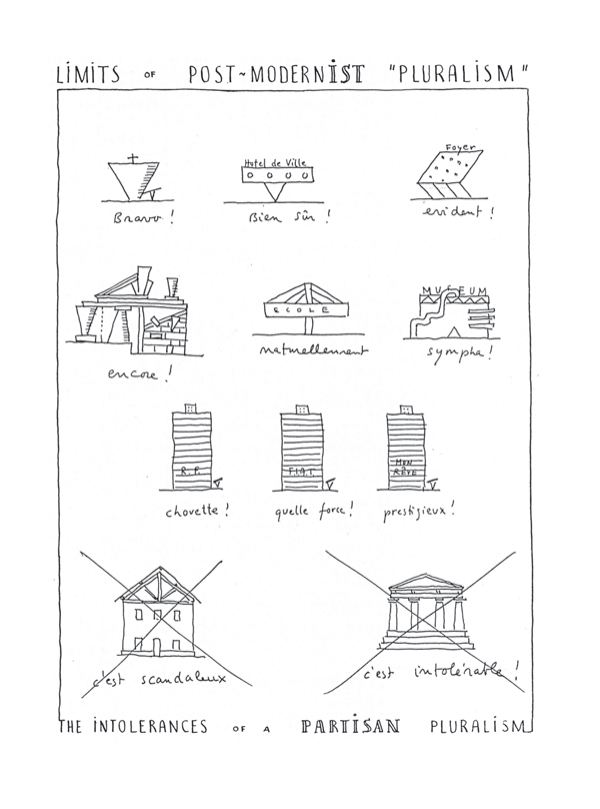 LIMITS OF POST~MODERNIST "PLURALISM"
Bravo !
Hotel de Ville
Bien sûr !
Foyer
evident !
encore !
ECOLE
naturellement
MUSEUM
sympha !
R.P.
chovette !
F.I.A.T.
quelle force !
MON
RÊVE
prestigieux !
c'est scandaleux
c'est intolérable !
THE INTOLERANCES OF A PARTISAN PLURALISM